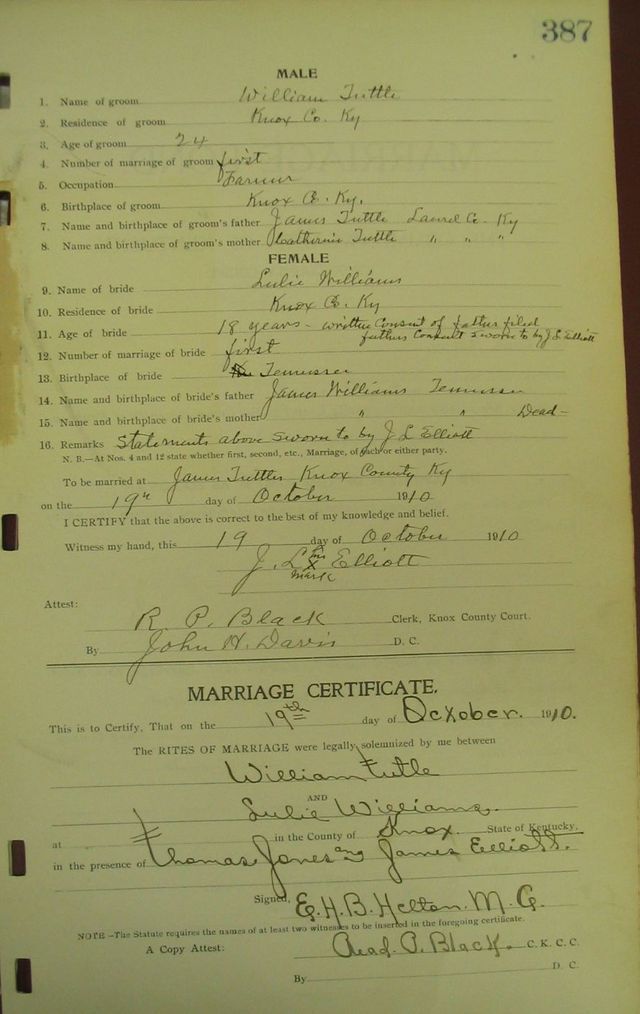 387
MALE
1. Name of groom William Tuttle
2. Residence of groom Knox Co. Ky
3. Age of groom 24
4. Number of marriage of groom first
5. Occupation Farmer
6. Birthplace of groom Knox Co. Ky.
7. Name and birthplace of groom's father James Tuttle Laurel Co. Ky
8. Name and birthplace of groom's mother Catherine Tuttle " " "
FEMALE
9. Name of bride Lulie Williams
10. Residence of bride Knox Co. Ky
11. Age of bride 18 years - written consent of father filed
fathers consent sworn to by J L Elliott
12. Number of marriage of bride first
13. Birthplace of bride Tennessee
14. Name and birthplace of bride's father James Williams Tennessee
15. Name and birthplace of bride's mother " " Dead-
16. Remarks Statements above sworn to by J L Elliott
N. B.—At Nos. 4 and 12 state whether first, second, etc., Marriage, of each or either party.
To be married at James Tuttles Knox County Ky
on the 19th day of October 1910
I CERTIFY that the above is correct to the best of my knowledge and belief.
Witness my hand, this 19 day of October 1910
J. L his x Elliott
mark
Attest:
R. P. Black Clerk, Knox County Court.
By John H. Davis D. C.
MARRIAGE CERTIFICATE.
This is to Certify, That on the 19th day of Ocxober. 1910.
The RITES OF MARRIAGE were legally solemnized by me between
William Tutle
AND
Lulie Williams.
at in the County of Knox. State of Kentucky,
in the presence of Thomas Jones and James Elliott.
Signed, E. H. B. Helton. M. G.
NOTE—The Statute requires the names of at least two witnesses to be inserted in the foregoing certificate.
A Copy Attest: Read. P. Black. C. K. C. C.
By D. C.